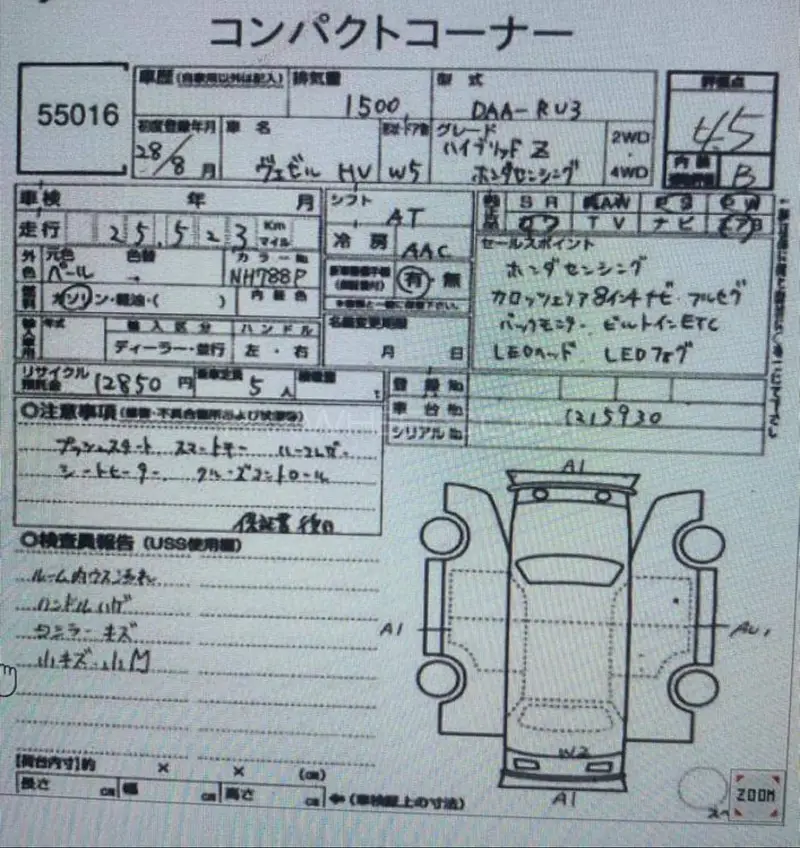 コンパクトコーナー
55016
車歴 (自家用以外は記入)
排気量 1500
型式 DAA-RU3
評価点 4.5
初度登録年月 28/8月
車名 ヴェゼル HV W5
グレード ハイブリッド Z ホンダセンシング
2WD・4WD
内装 B
車検 年 月
シフト AT
SR AW PS PW
TV ナビ
走行 25,523 Km マイル
冷房 AAC
セールスポイント
ホンダセンシング
外色 元色 パール 色替 → カラーNo NH788P
有・無
カロッツェリア 8インチナビ・フルセグ
燃料 ガソリン・軽油・( ) 内装色
バックモニター ビルトインETC
年式 輸入区分 ハンドル
名義変更期限
LEDヘッド LEDフォグ
ディーラー・並行 左・右
月 日
リサイクル預託金 12850円 乗車定員 5人 積載量 t
登録No
車台No 1215930
シリアルNo
◎注意事項
プッシュスタート スマートキー ハーフレザー
シートヒーター クルーズコントロール
保証書後日
◎検査員報告 (USS使用欄)
ルーム内ウスヨゴレ
ハンドルハゲ
ワイラー キズ
小キズ・小凹
A1
A1
AU1
W2
A1
[荷台内寸]約 × × (cm)
長さ cm 幅 cm 高さ cm ←(車検証上の寸法)
スペ
ZOOM